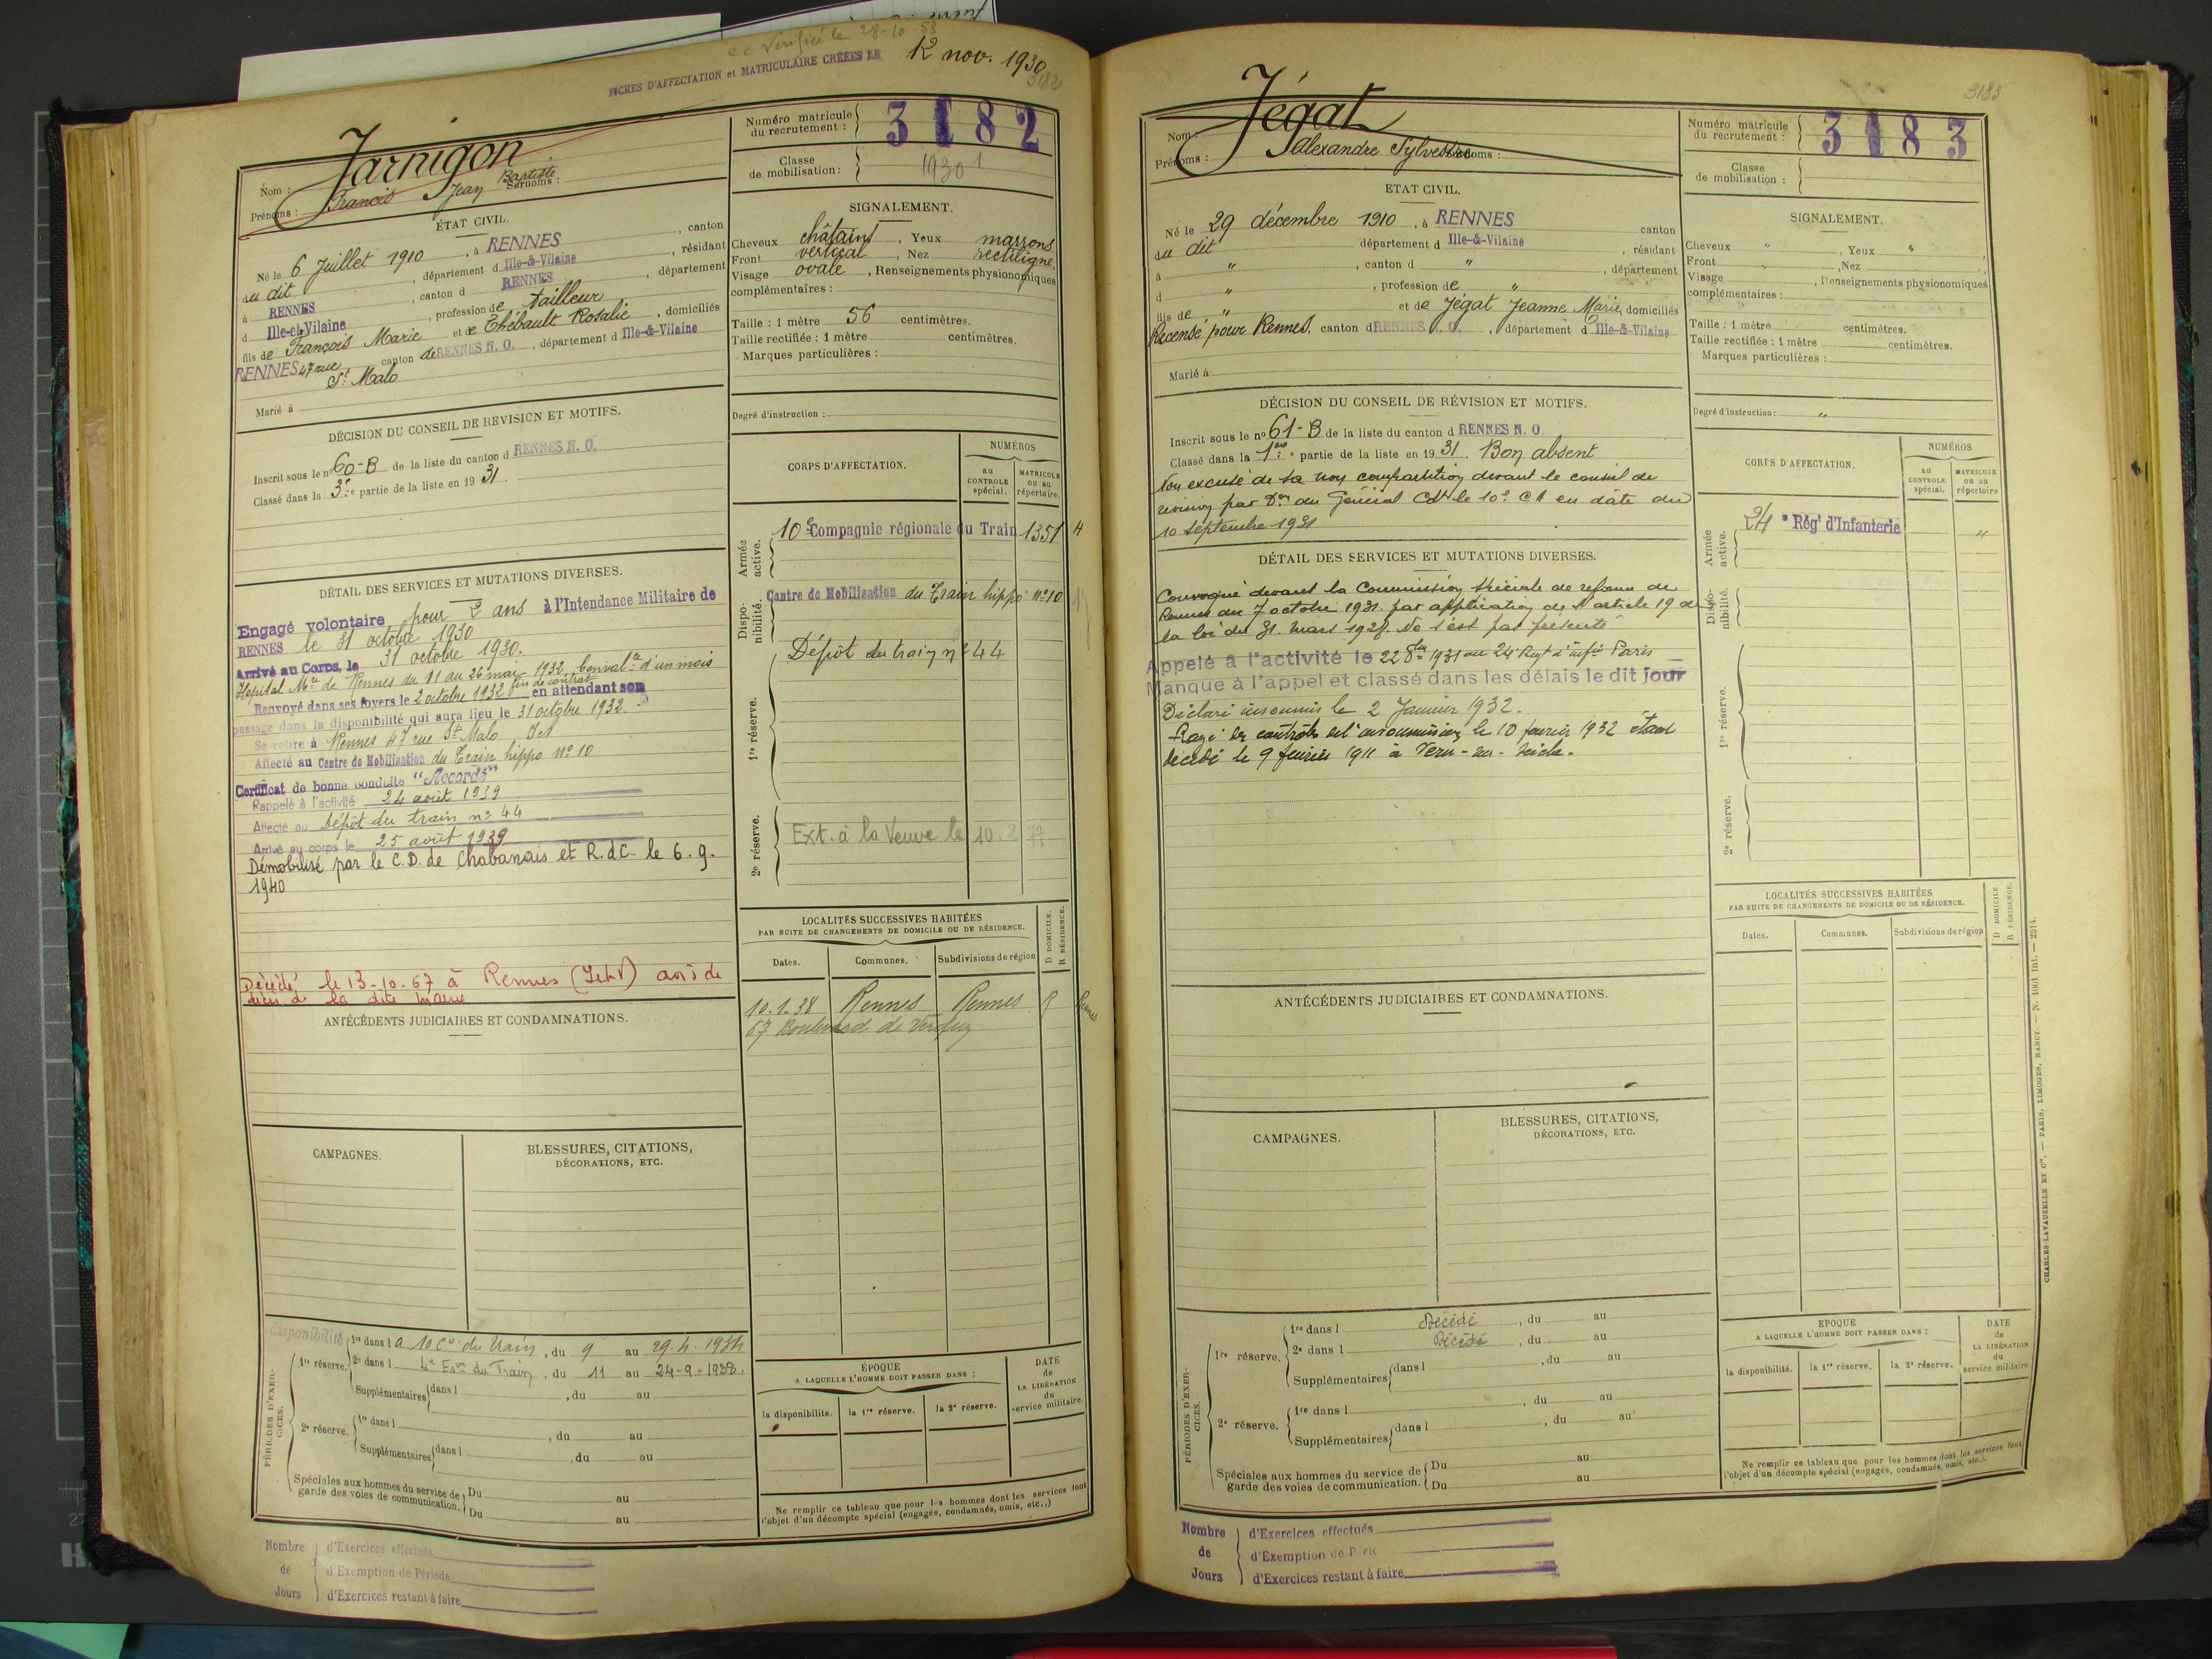 Vérifié le 28-10-53
FICHES D'AFFECTATION et MATRICULAIRE CRÉÉES LE 12 nov. 1930
3182
Nom : Jarnigon
Prénoms : Francis Jean Baptiste Surnoms :
ÉTAT CIVIL.
Né le 6 Juillet 1910, à RENNES, canton
du dit, département d Ille-&-Vilaine, résidant
à RENNES, canton d RENNES, département
d Ille-et-Vilaine, profession de tailleur
fils de François Marie et de Thébault Rosalie, domiciliés
RENNES 47 rue canton de RENNES N. O., département d Ille-&-Vilaine
St Malo
Marié à
DÉCISION DU CONSEIL DE REVISION ET MOTIFS.
Inscrit sous le n° 60-B de la liste du canton d RENNES N. O.
Classé dans la 3e partie de la liste en 19 31.
DÉTAIL DES SERVICES ET MUTATIONS DIVERSES.
Engagé volontaire pour 2 ans à l'Intendance Militaire de
RENNES le 31 octobre 1930
Arrivé au Corps, le 31 octobre 1930.
Hôpital Mre de Rennes du 11 au 26 mai 1932 Convalce d'un mois
Renvoyé dans ses foyers le 2 octobre 1932 fin de contrat en attendant son
passage dans la disponibilité qui aura lieu le 31 octobre 1932.
Se retire à Rennes 47 rue St Malo, I et V
Affecté au Centre de Mobilisation du Train hippo n° 10
Certificat de bonne conduite "Accordé"
Rappelé à l'activité 24 août 1939
Affecté au Dépôt du train n° 44
Arrivé au corps le 25 août 1939
Démobilisé par le C.D. de Chabanais et R.d C. le 6.9.
1940
Décédé le 13-10-67 à Rennes (I et V) avis de
décès de la dite mairie
ANTÉCÉDENTS JUDICIAIRES ET CONDAMNATIONS.
CAMPAGNES.
BLESSURES, CITATIONS,
DÉCORATIONS, ETC.
PÉRIODES D'EXERCICES.
disponibilité
1re réserve. 1re dans l a 10 Cie du Train, du 9 au 29.4.1934
2e dans l 4e Eson du Train, du 11 au 24-9-1938.
Supplémentaires dans l , du au
2e réserve. 1re dans l , du au
Supplémentaires dans l , du au
Spéciales aux hommes du service de garde des voies de communication. Du au
Du au
Nombre de Jours
d'Exercices effectués
d'Exemption de Période
d'Exercices restant à faire
Numéro matricule du recrutement : 3182
Classe de mobilisation : 1930
SIGNALEMENT.
Cheveux châtains, Yeux marrons
Front vertical, Nez rectiligne,
Visage ovale, Renseignements physionomiques
complémentaires :
Taille : 1 mètre 56 centimètres.
Taille rectifiée : 1 mètre centimètres.
Marques particulières :
Degré d'instruction :
CORPS D'AFFECTATION.
NUMÉROS
au CONTROLE spécial.
MATRICULE ou au répertoire.
Armée active.
10e Compagnie régionale du Train 1351
Disponibilité.
Centre de Mobilisation du Train hippo n° 10
1re réserve.
Dépôt du train n° 44
2e réserve.
Ext. à la Veuve le 10.2.77
LOCALITÉS SUCCESSIVES HABITÉES
PAR SUITE DE CHANGEMENTS DE DOMICILE OU DE RÉSIDENCE.
Dates. Communes. Subdivisions de région D DOMICILE. R RÉSIDENCE.
10.1.38 Rennes Rennes R Rennes
67 Boulevard de Verdun
ÉPOQUE
A LAQUELLE L'HOMME DOIT PASSER DANS :
la disponibilité. la 1re réserve. la 2e réserve.
DATE de LA LIBÉRATION du service militaire.
Ne remplir ce tableau que pour les hommes dont les services font
l'objet d'un décompte spécial (engagés, condamnés, omis, etc..)
3183
Nom : Jégat
Prénoms : Alexandre Sylvestre Surnoms :
ETAT CIVIL.
Né le 29 décembre 1910, à RENNES canton
du dit département d Ille-&-Vilaine, résidant
à ", canton d ", département
d ", profession de "
fils de " et de Jégat Jeanne Marie, domiciliés
Recensé pour Rennes. canton d RENNES N. O., département d Ille-&-Vilaine
Marié à
DÉCISION DU CONSEIL DE RÉVISION ET MOTIFS.
Inscrit sous le n° 61-B de la liste du canton d RENNES N. O.
Classé dans la 1ère partie de la liste en 19 31. Bon absent
Non excusé de sa non comparution devant le conseil de
révision par Don du Général Cdt le 10e CA en date du
10 septembre 1931
DÉTAIL DES SERVICES ET MUTATIONS DIVERSES.
Convoqué devant la Commission spéciale de réforme de
Rennes du 7 octobre 1931 par application de l'article 19 de
la loi du 31 mars 1928. Ne s'est pas présenté
Appelé à l'activité le 22 8bre 1931 au 24 Regt d'infie Paris
Manque à l'appel et classé dans les délais le dit jour
Déclaré insoumis le 2 Janvier 1932.
Rayé des contrôles de l'insoumission le 10 février 1932 étant
décédé le 9 février 1911 à Vern-sur-Seiche.
ANTÉCÉDENTS JUDICIAIRES ET CONDAMNATIONS.
CAMPAGNES.
BLESSURES, CITATIONS,
DÉCORATIONS, ETC.
PÉRIODES D'EXERCICES.
1re réserve. 1re dans l Décédé, du au
2e dans l Décédé, du au
Supplémentaires dans l , du au
2e réserve. 1re dans l , du au
Supplémentaires dans l , du au
Spéciales aux hommes du service de garde des voies de communication. Du au
Du au
Nombre de Jours
d'Exercices effectués
d'Exemption de
d'Exercices restant à faire
Numéro matricule du recrutement : 3183
Classe de mobilisation :
SIGNALEMENT.
Cheveux ", Yeux "
Front ", Nez
Visage , Renseignements physionomiques
complémentaires :
Taille : 1 mètre centimètres.
Taille rectifiée : 1 mètre centimètres.
Marques particulières :
Degré d'instruction : "
CORPS D'AFFECTATION.
NUMÉROS
au CONTROLE spécial.
MATRICULE ou au répertoire
Armée active.
24e Rég' d'Infanterie "
Disponibilité.
1re réserve.
2e réserve.
LOCALITÉS SUCCESSIVES HABITÉES
PAR SUITE DE CHANGEMENTS DE DOMICILE OU DE RÉSIDENCE.
Dates. Communes. Subdivisions de région D DOMICILE. R RÉSIDENCE.
EPOQUE
A LAQUELLE L'HOMME DOIT PASSER DANS :
la disponibilité. la 1re réserve. la 2e réserve.
DATE de LA LIBÉRATION du service militaire.
Ne remplir ce tableau que pour les hommes dont les services font
l'objet d'un décompte spécial (engagés, condamnés, omis, etc.).
CHARLES-LAVAUZELLE ET Cie. — PARIS, LIMOGES, NANCY. — N. 1001 Int. — 2514.